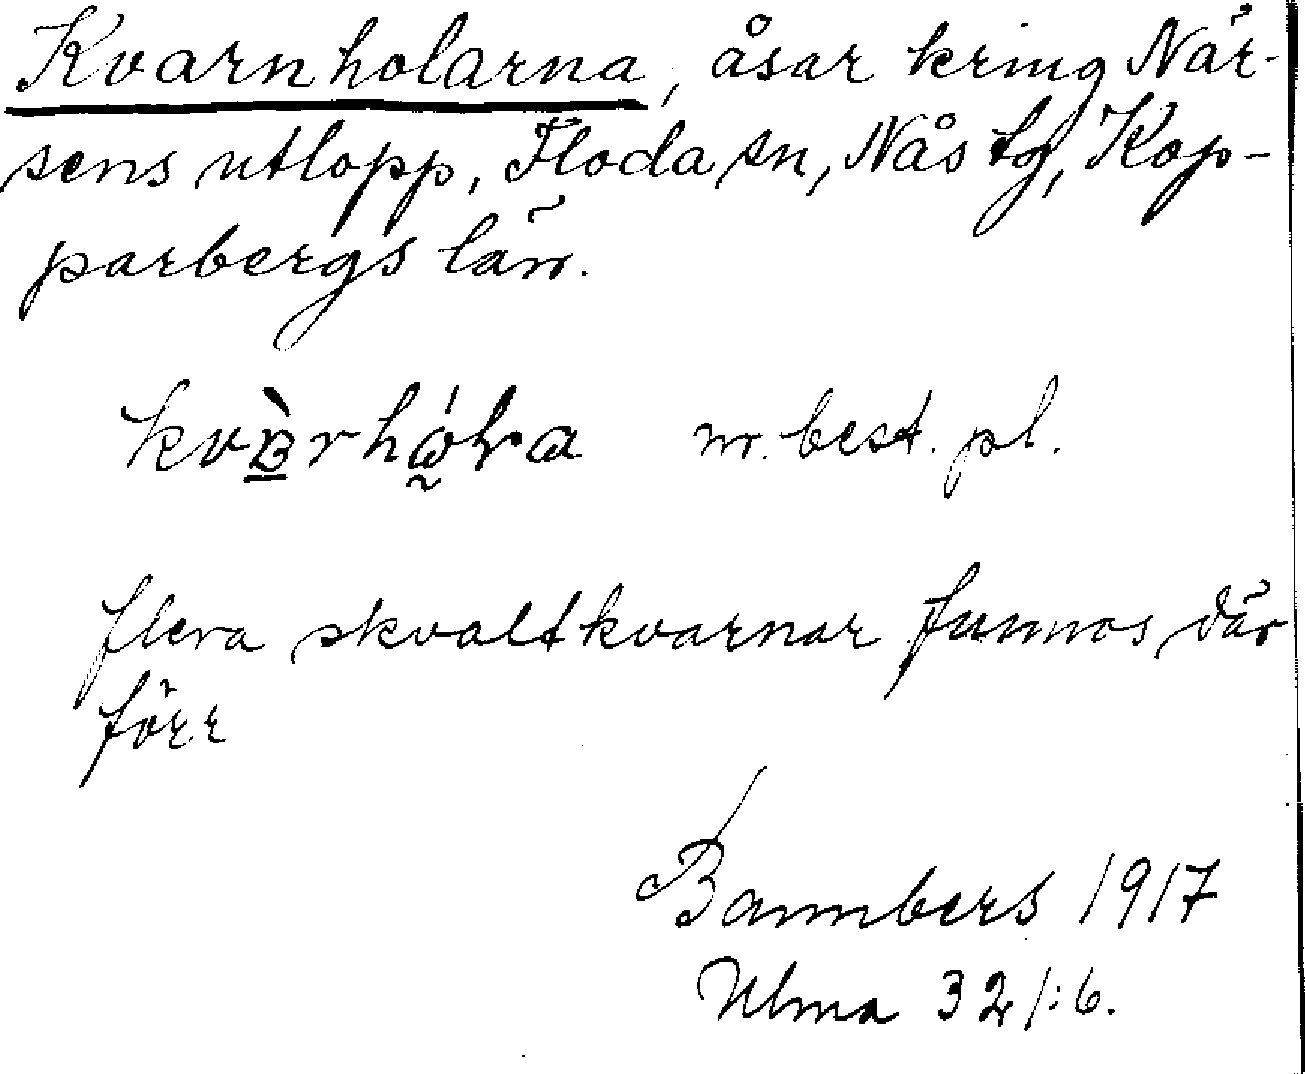 Kvarnholarna, åsar kring När-
sens utlopp, Floda sn, Nås tg, Kop-
parbergs län.
m. best. pl.
flera skvaltkvarnar funnos där
förr
Bannbers 1917
Ulma 321:6.